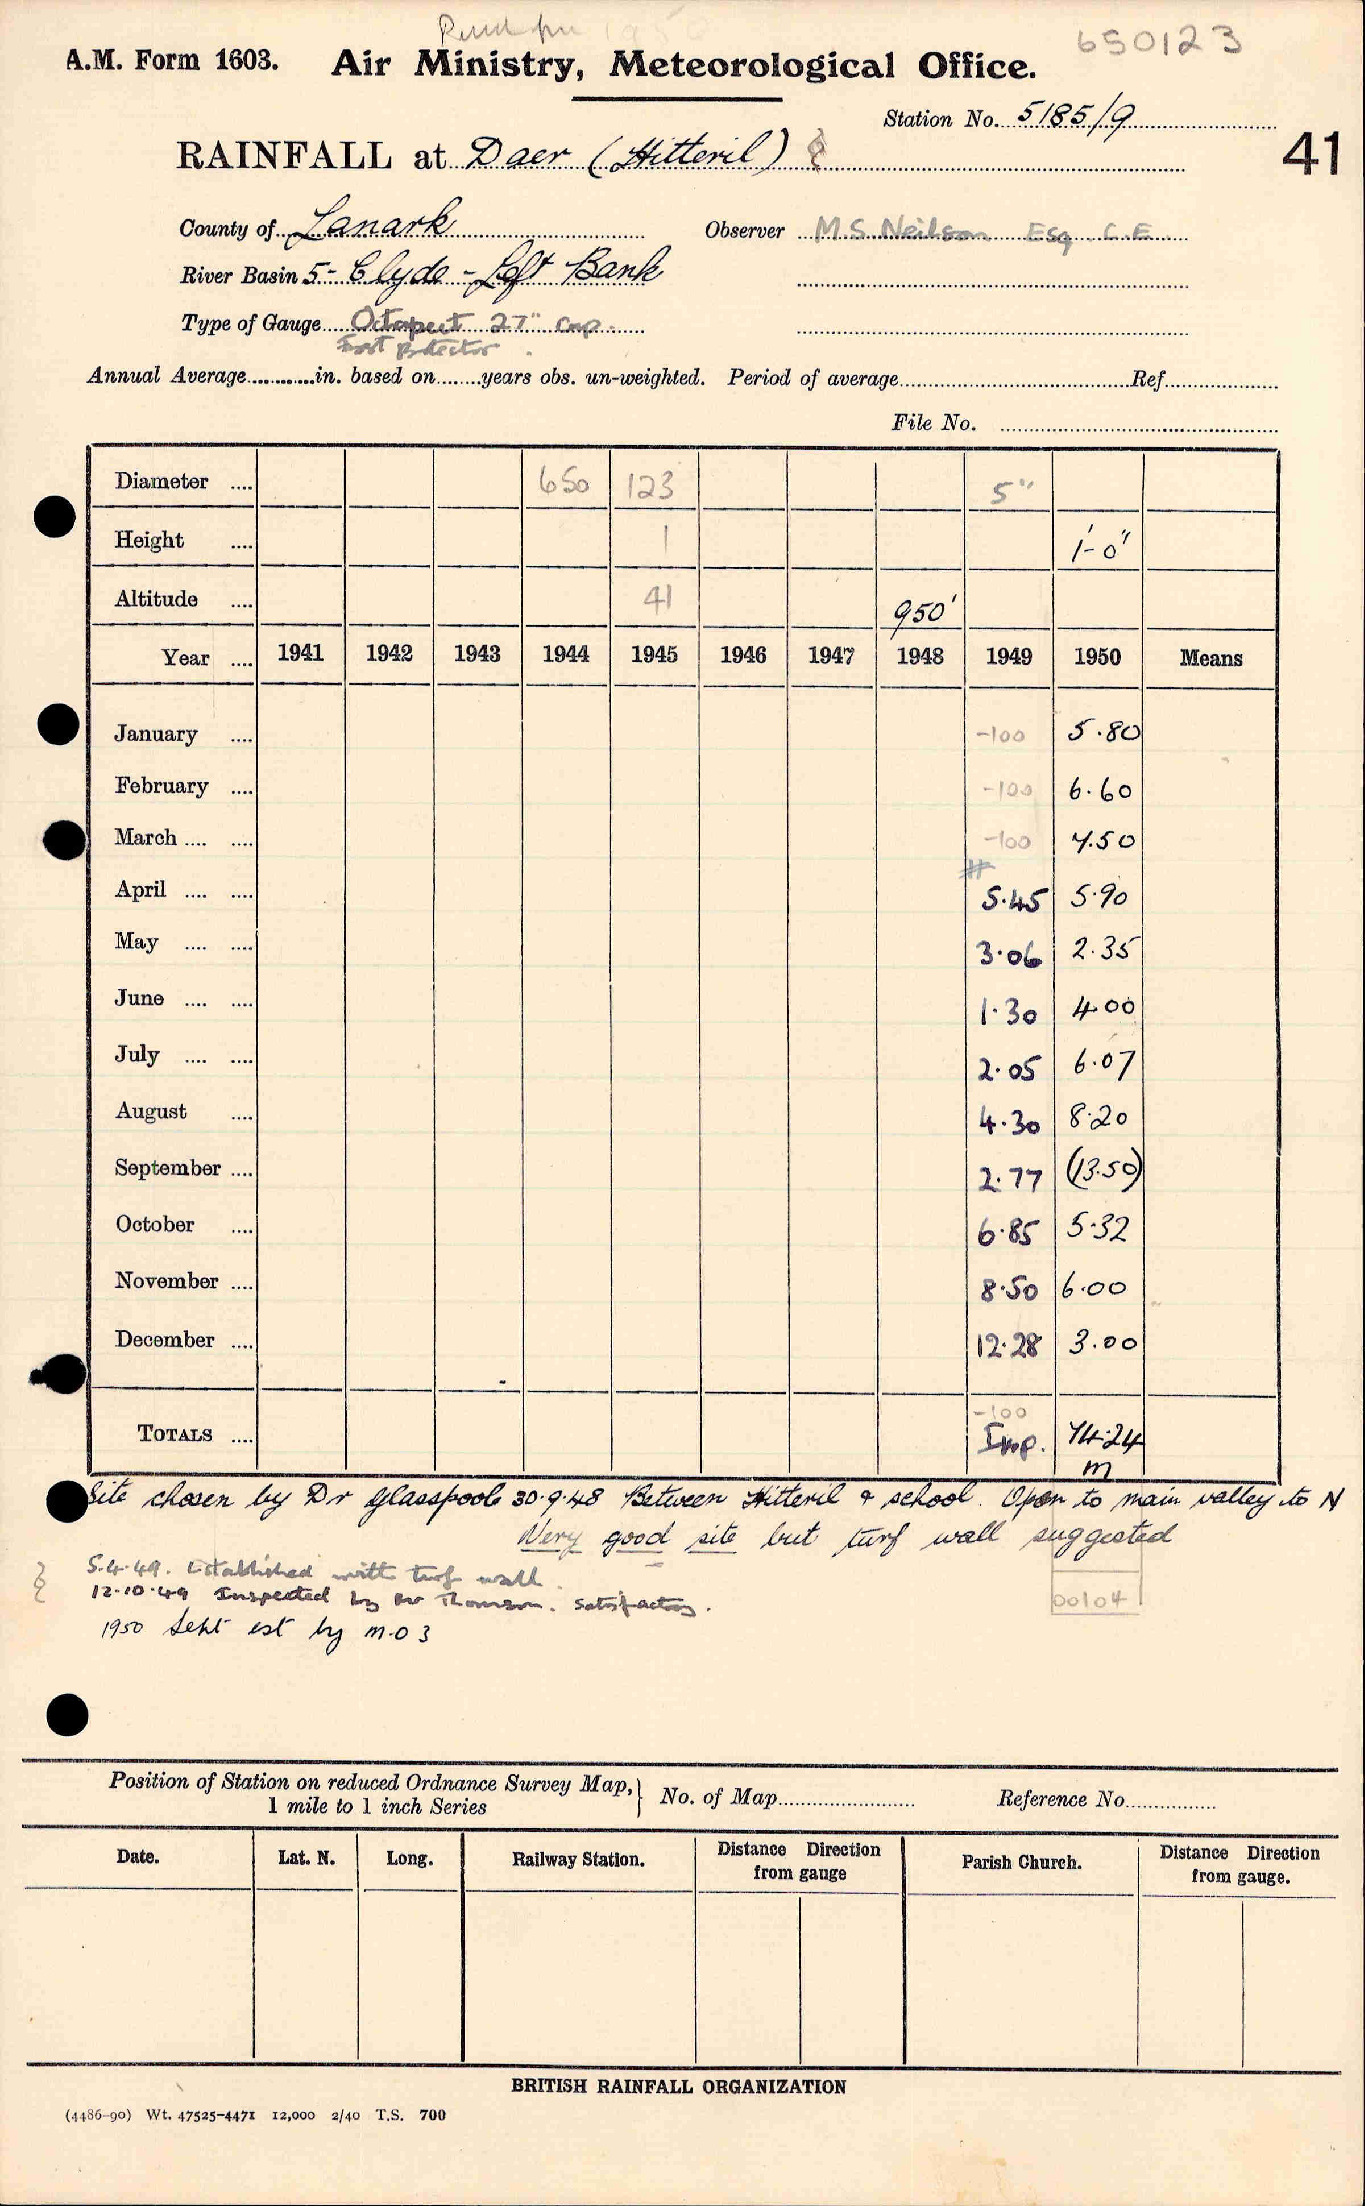 1950
650123
A.M. Form 1603. Air Ministry, Meteorological Office.
Station No. 5185/9
41
RAINFALL at Daer (Hitteril)
County of Lanark Observer M.S. Neilson Esq. C.E.
River Basin 5- Clyde - Left Bank
Type of Gauge Octapent 27" cap.
Frost Protector
Annual Average............in. based on........years obs. un-weighted. Period of average............Ref............
File No. ............
Diameter .... 650 123 5"
Height .... 1 1'-0"
Altitude .... 41 950'
Year .... 1941 1942 1943 1944 1945 1946 1947 1948 1949 1950 Means
January .... -100 5.80
February .... -100 6.60
March .... .... -100 7.50
#
April .... .... 5.45 5.90
May .... .... 3.06 2.35
June .... .... 1.30 4.00
July .... .... 2.05 6.07
August .... 4.30 8.20
September .... 2.77 (13.50)
October .... 6.85 5.32
November .... 8.50 6.00
December .... 12.28 3.00
-100
TOTALS .... Imp. 74.24
m
Site chosen by Dr Glasspoole 30.9.48 Between Hitteril & school. Open to main valley to N
Very good site but turf wall suggested
5.4.49. Established with turf wall.
12.10.49 Inspected by Mr Thomson. Satisfactory.
00104
1950 Sept est by M.O 3
Position of Station on reduced Ordnance Survey Map, } No. of Map............ Reference No............
1 mile to 1 inch Series
Date. Lat. N. Long. Railway Station. Distance Direction from gauge Parish Church. Distance Direction from gauge.
BRITISH RAINFALL ORGANIZATION
(4486-90) Wt. 47525-4471 12,000 2/40 T.S. 700